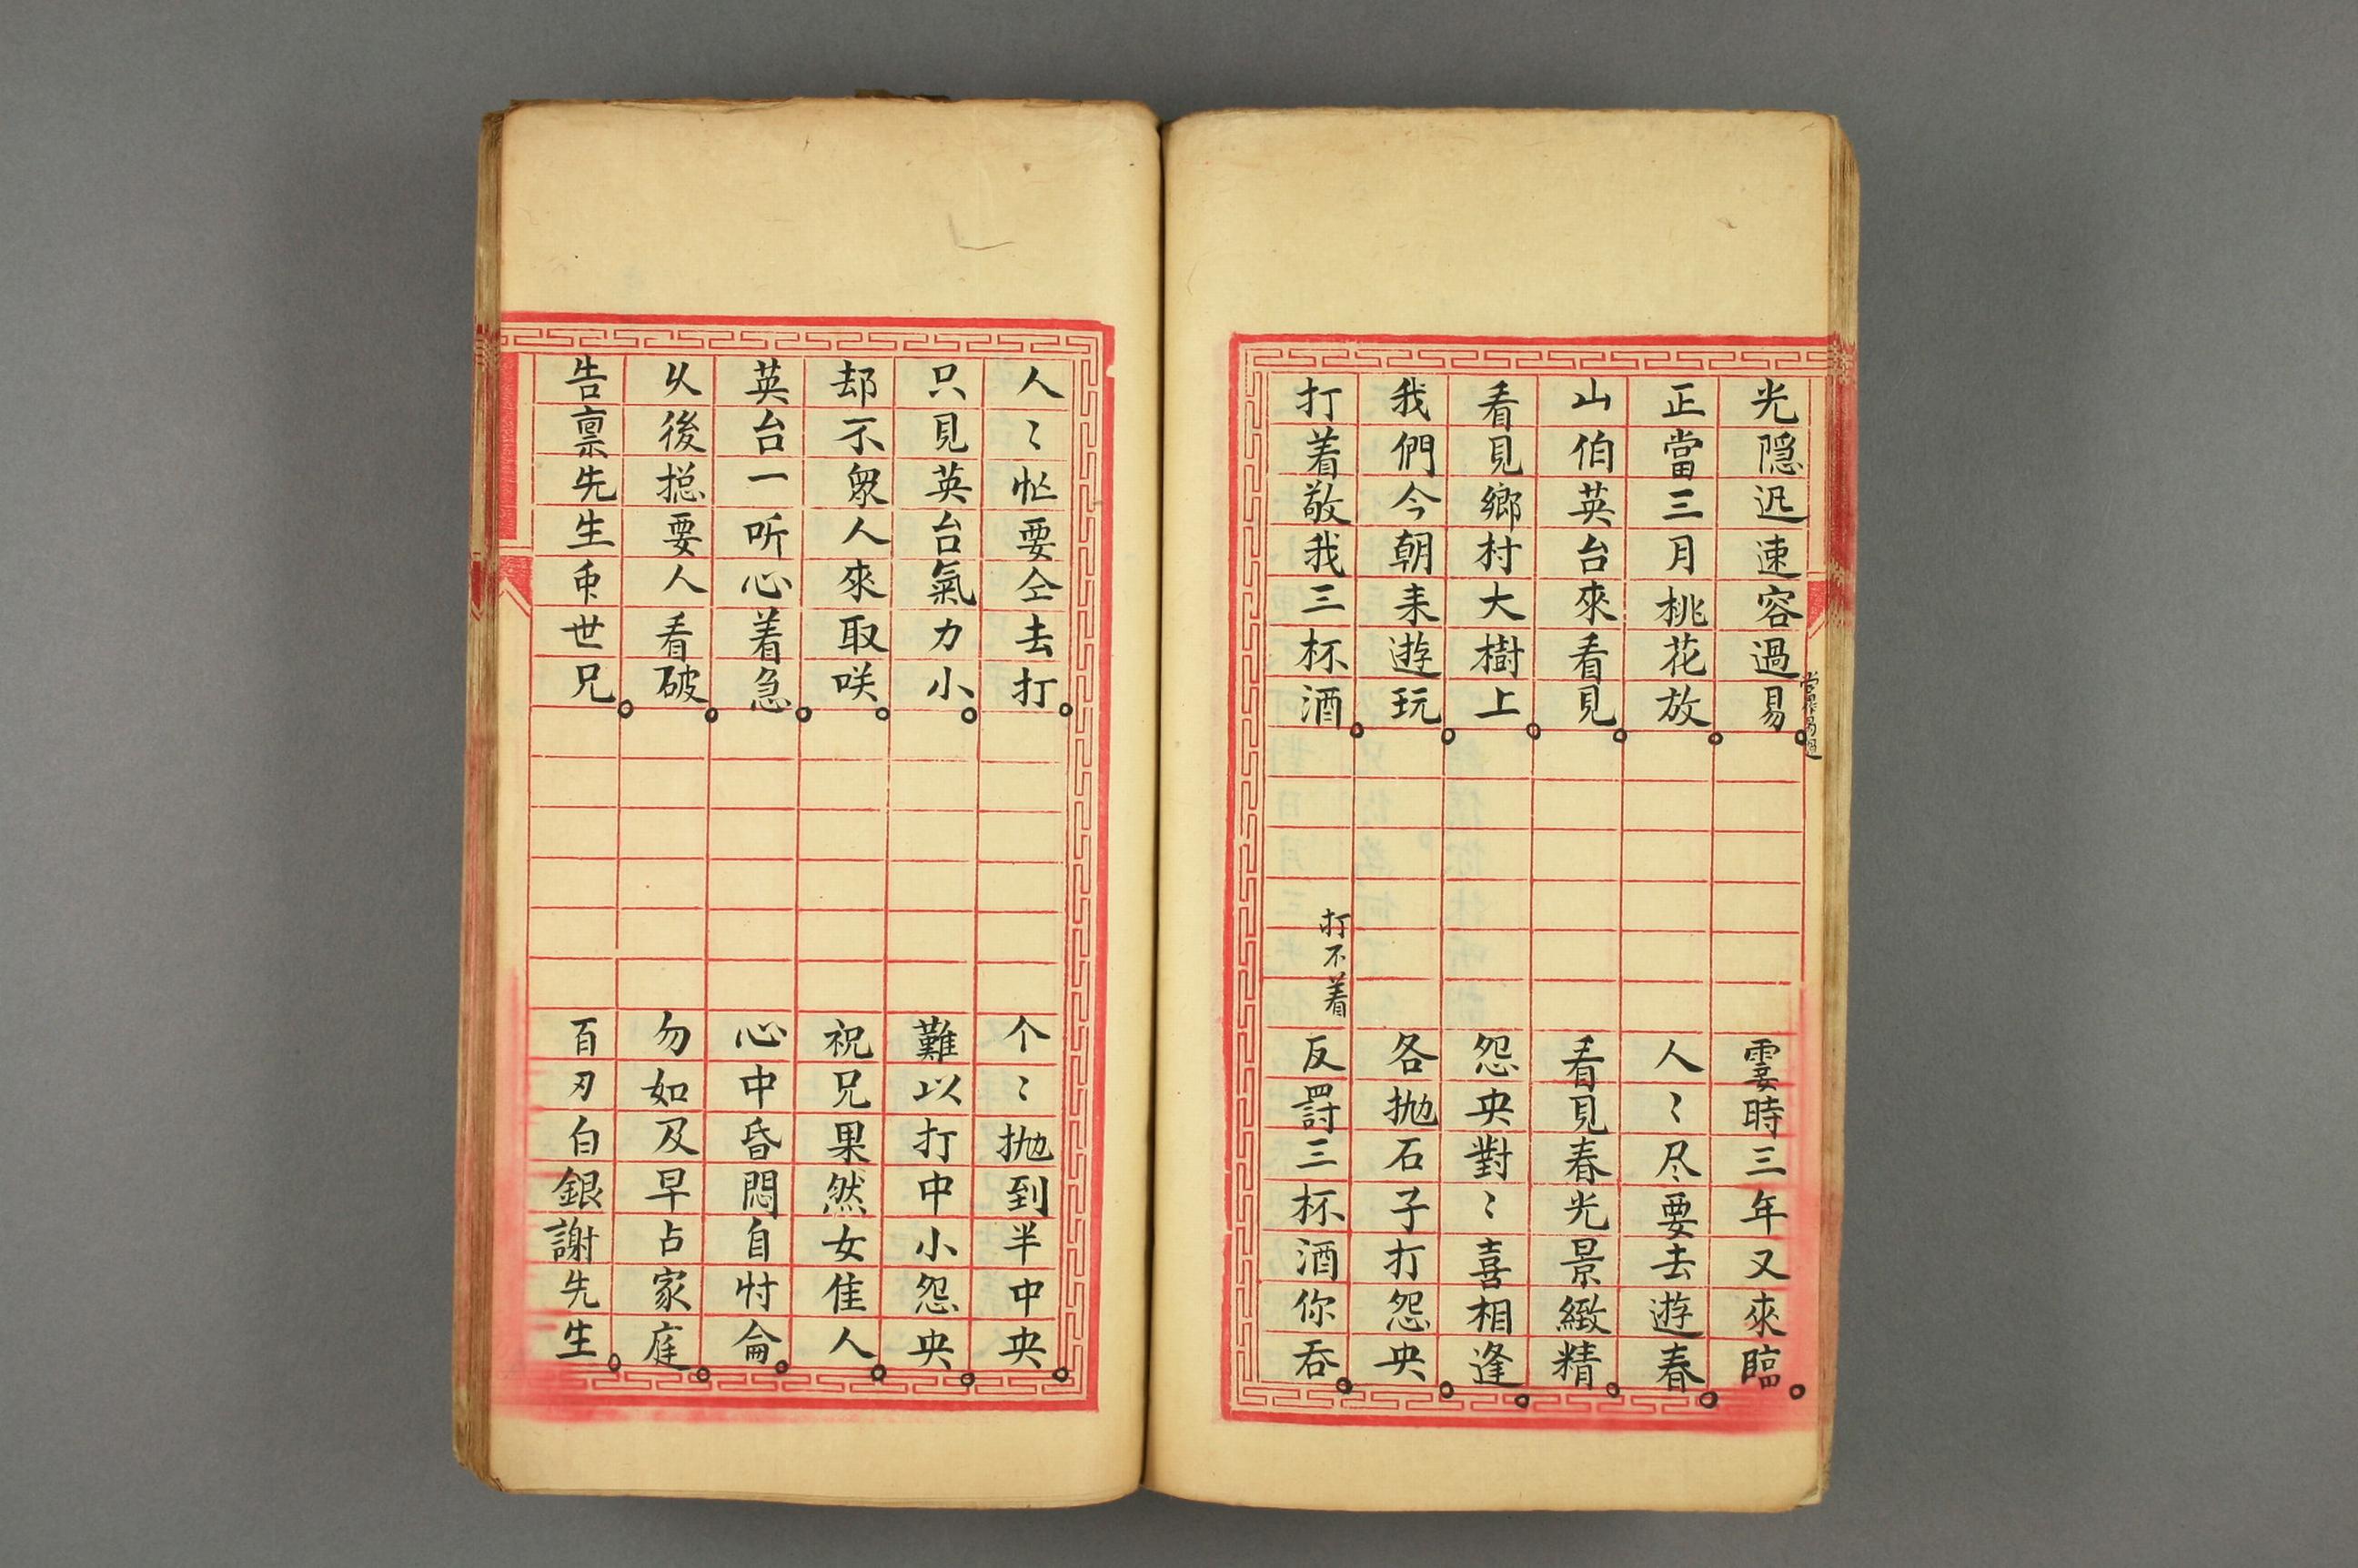 光隱迅速容過易
霎時三年又來臨
正當三月桃花放
人〻尽要去遊春
山伯英台來看見
看見春光景緻精
看見鄉村大樹上
怨央對〻喜相逢
我們今朝来遊玩
各抛石子打怨央
打着敬我三杯酒
打不着
反罰三杯酒你吞
人〻忙要仝去打
个〻抛到半中央
只見英台氣力小
難以打中小怨央
却不衆人來取咲
祝兄果然女佳人
英台一听心着急
心中昏悶自忖侖
从後搃要人看破
勿如及早占家庭
告禀先生帀世兄
百刃白銀謝先生